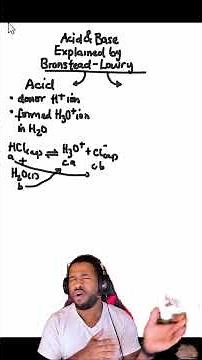 Acid & Base
Explained by
Bronstead-Lowry
Acid
• donor H⁺ ion
• formed H₃O⁺ ion
in H₂O
HCl(aq) ⇌ H₃O⁺ + Cl⁻(aq)
a + ca cb
H₂O(l)
b